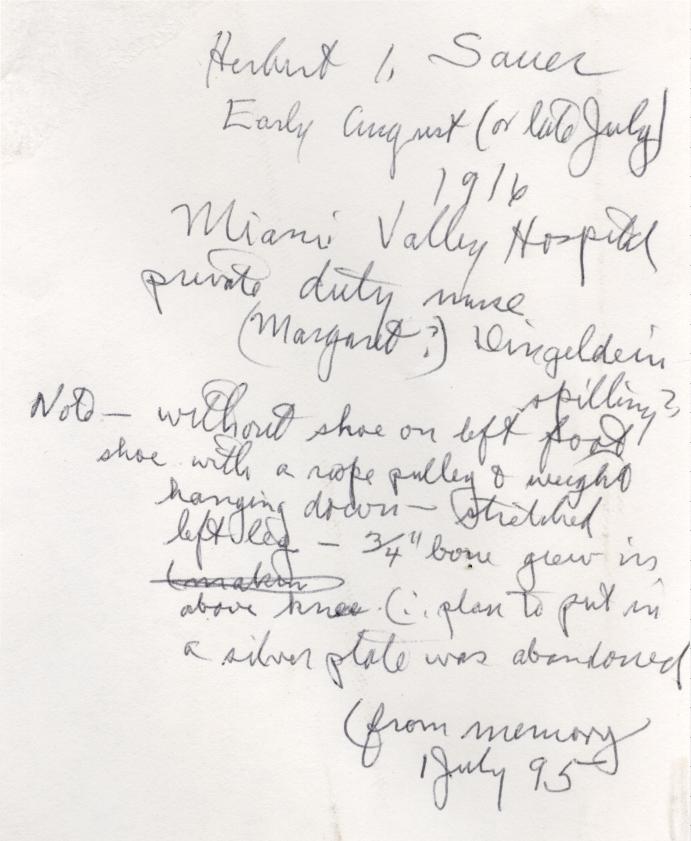 Herbert I. Sauer
Early August (or late July)
1916
Miami Valley Hospital
private duty nurse
(Margaret?) Dingeldein
spilling?
Note — without shoe on left foot
shoe with a rope pulley & weight
hanging down — stretched
left leg — 3/4" bone grew in
above knee (∴ plan to put in
a silver plate was abandoned
(from memory
1 July 95